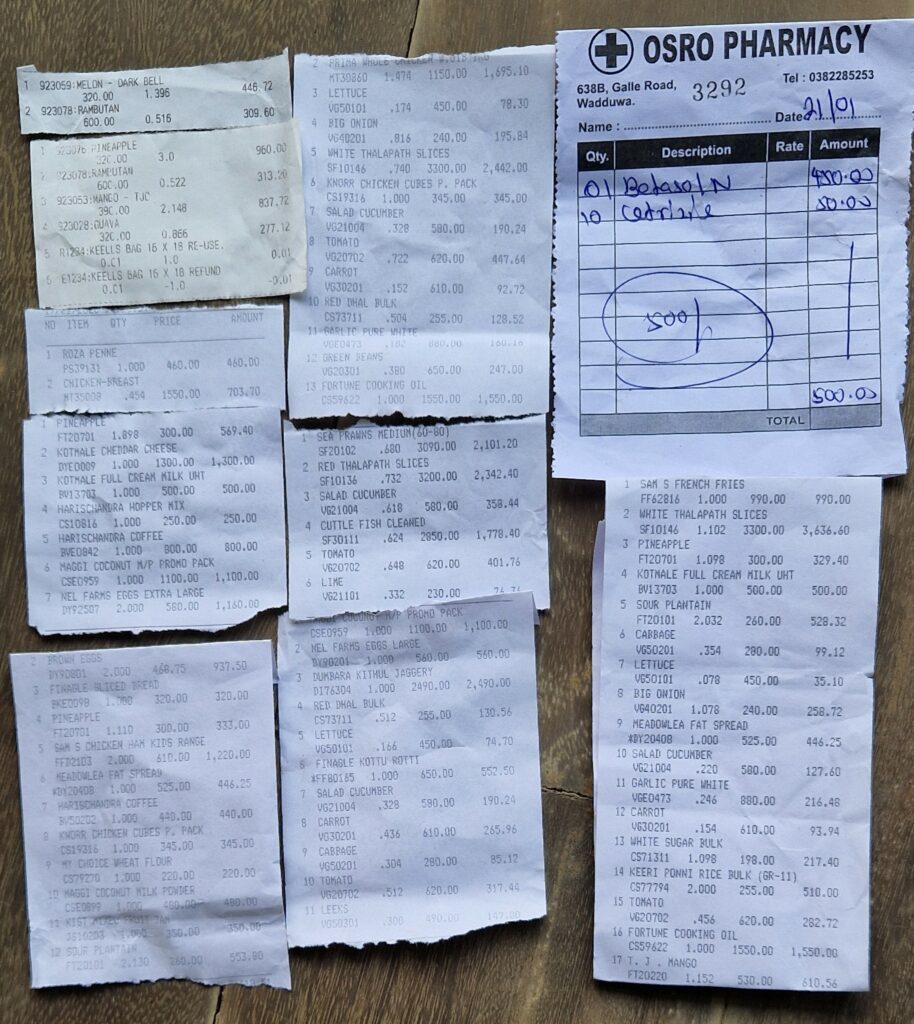 1 923059:MELON - DARK BELL
320.00 1.396 446.72
2 923078:RAMBUTAN
600.00 0.516 309.60
1 923076 PINEAPPLE
320.00 3.0 960.00
923078:RAMBUTAN
600.00 0.522 313.20
3 923053:MANGO - TJC
390.00 2.148 837.72
923028:GUAVA
320.00 0.866 277.12
5 R1234:KEELLS BAG 16 X 18 RE-USE.
0.01 1.0 0.01
6 E1234:KEELLS BAG 16 X 18 REFUND
0.01 -1.0 -0.01
NO ITEM QTY PRICE AMOUNT
1 ROZA PENNE
PS39131 1.000 460.00 460.00
2 CHICKEN-BREAST
MT35008 .454 1550.00 703.70
1 PINEAPPLE
FT20701 1.898 300.00 569.40
2 KOTMALE CHEDDAR CHEESE
DYE0009 1.000 1300.00 1,300.00
3 KOTMALE FULL CREAM MILK UHT
BV13703 1.000 500.00 500.00
4 HARISCHANDRA HOPPER MIX
CS10816 1.000 250.00 250.00
5 HARISCHANDRA COFFEE
BVE0842 1.000 800.00 800.00
6 MAGGI COCONUT M/P PROMO PACK
CSE0959 1.000 1100.00 1,100.00
7 NEL FARMS EGGS EXTRA LARGE
DY92507 2.000 580.00 1,160.00
2 BROWN EGGS
DY90801 2.000 468.75 937.50
3 FINAGLE SLICED BREAD
BKE0098 1.000 320.00 320.00
4 PINEAPPLE
FT20701 1.110 300.00 333.00
5 SAM S CHICKEN HAM KIDS RANGE
FFD2103 2.000 610.00 1,220.00
6 MEADOWLEA FAT SPREAD
*DY20408 1.000 525.00 446.25
7 HARISCHANDRA COFFEE
BV50202 1.000 440.00 440.00
8 KNORR CHICKEN CUBES P. PACK
CS19316 1.000 345.00 345.00
9 MY CHOICE WHEAT FLOUR
CS79270 1.000 220.00 220.00
10 MAGGI COCONUT MILK POWDER
CSE0899 1.000 480.00 480.00
11 KIST MIXED FRUIT JAM
1.000 350.00 350.00
12 SOUR PLANTAIN
FT20101 2.130 260.00 553.80
2 PRIMA WHOLE CHICKEN
MT30860 1.474 1150.00 1,695.10
3 LETTUCE
VG50101 .174 450.00 78.30
4 BIG ONION
VG40201 .816 240.00 195.84
5 WHITE THALAPATH SLICES
SF10146 .740 3300.00 2,442.00
6 KNORR CHICKEN CUBES P. PACK
CS19316 1.000 345.00 345.00
7 SALAD CUCUMBER
VG21004 .328 580.00 190.24
8 TOMATO
VG20702 .722 620.00 447.64
9 CARROT
VG30201 .152 610.00 92.72
10 RED DHAL BULK
CS73711 .504 255.00 128.52
11 GARLIC PURE WHITE
VGE0473 .182 880.00 160.16
12 GREEN BEANS
VG20301 .380 650.00 247.00
13 FORTUNE COOKING OIL
CS59622 1.000 1550.00 1,550.00
1 SEA PRAWNS MEDIUM(60-80)
SF20102 .680 3090.00 2,101.20
2 RED THALAPATH SLICES
SF10136 .732 3200.00 2,342.40
3 SALAD CUCUMBER
VG21004 .618 580.00 358.44
4 CUTTLE FISH CLEANED
SF30111 .624 2850.00 1,778.40
5 TOMATO
VG20702 .648 620.00 401.76
6 LIME
VG21101 .332 230.00
COCONUT M/P PROMO PACK
CSE0959 1.000 1100.00 1,100.00
2 NEL FARMS EGGS LARGE
DY90201 1.000 560.00 560.00
3 DUMBARA KITHUL JAGGERY
DI76304 1.000 2490.00 2,490.00
4 RED DHAL BULK
CS73711 .512 255.00 130.56
5 LETTUCE
VG50101 .166 450.00 74.70
6 FINAGLE KOTTU ROTTI
*FFB0165 1.000 650.00 552.50
7 SALAD CUCUMBER
VG21004 .328 580.00 190.24
8 CARROT
VG30201 .436 610.00 265.96
9 CABBAGE
VG50201 .304 280.00 85.12
10 TOMATO
VG20702 .512 620.00 317.44
11 LEEKS
VG50301 .300 490.00 147.00
OSRO PHARMACY
638B, Galle Road, Wadduwa.
3292
Tel : 0382285253
Name : Date 21/01
Qty. Description Rate Amount
01 Betasol N 450.00
10 50.00
500/
500.00
TOTAL
1 SAM S FRENCH FRIES
FF62816 1.000 990.00 990.00
2 WHITE THALAPATH SLICES
SF10146 1.102 3300.00 3,636.60
3 PINEAPPLE
FT20701 1.098 300.00 329.40
4 KOTMALE FULL CREAM MILK UHT
BV13703 1.000 500.00 500.00
5 SOUR PLANTAIN
FT20101 2.032 260.00 528.32
6 CABBAGE
VG50201 .354 280.00 99.12
7 LETTUCE
VG50101 .078 450.00 35.10
8 BIG ONION
VG40201 1.078 240.00 258.72
9 MEADOWLEA FAT SPREAD
*DY20408 1.000 525.00 446.25
10 SALAD CUCUMBER
VG21004 .220 580.00 127.60
11 GARLIC PURE WHITE
VGE0473 .246 880.00 216.48
12 CARROT
VG30201 .154 610.00 93.94
13 WHITE SUGAR BULK
CS71311 1.098 198.00 217.40
14 KEERI PONNI RICE BULK (GR-11)
CS77794 2.000 255.00 510.00
15 TOMATO
VG20702 .456 620.00 282.72
16 FORTUNE COOKING OIL
CS59622 1.000 1550.00 1,550.00
17 T. J . MANGO
FT20220 1.152 530.00 610.56